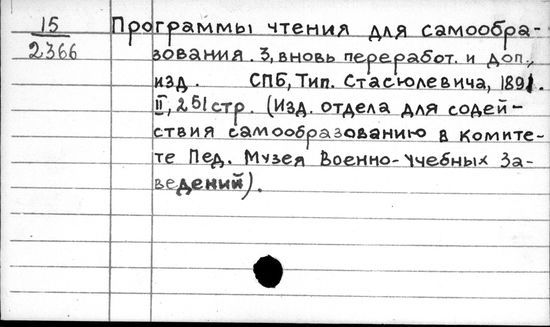 15 Программы чтения для самообра-
2366 зования. 3, вновь переработ. и доп.,
изд. СПБ, Тип. Стасюлевича, 1891.
II, 251 стр. (Изд. отдела для содей-
ствия самообразованию в комите-
те Пед. Музея Военно-Учебных За-
ведений).